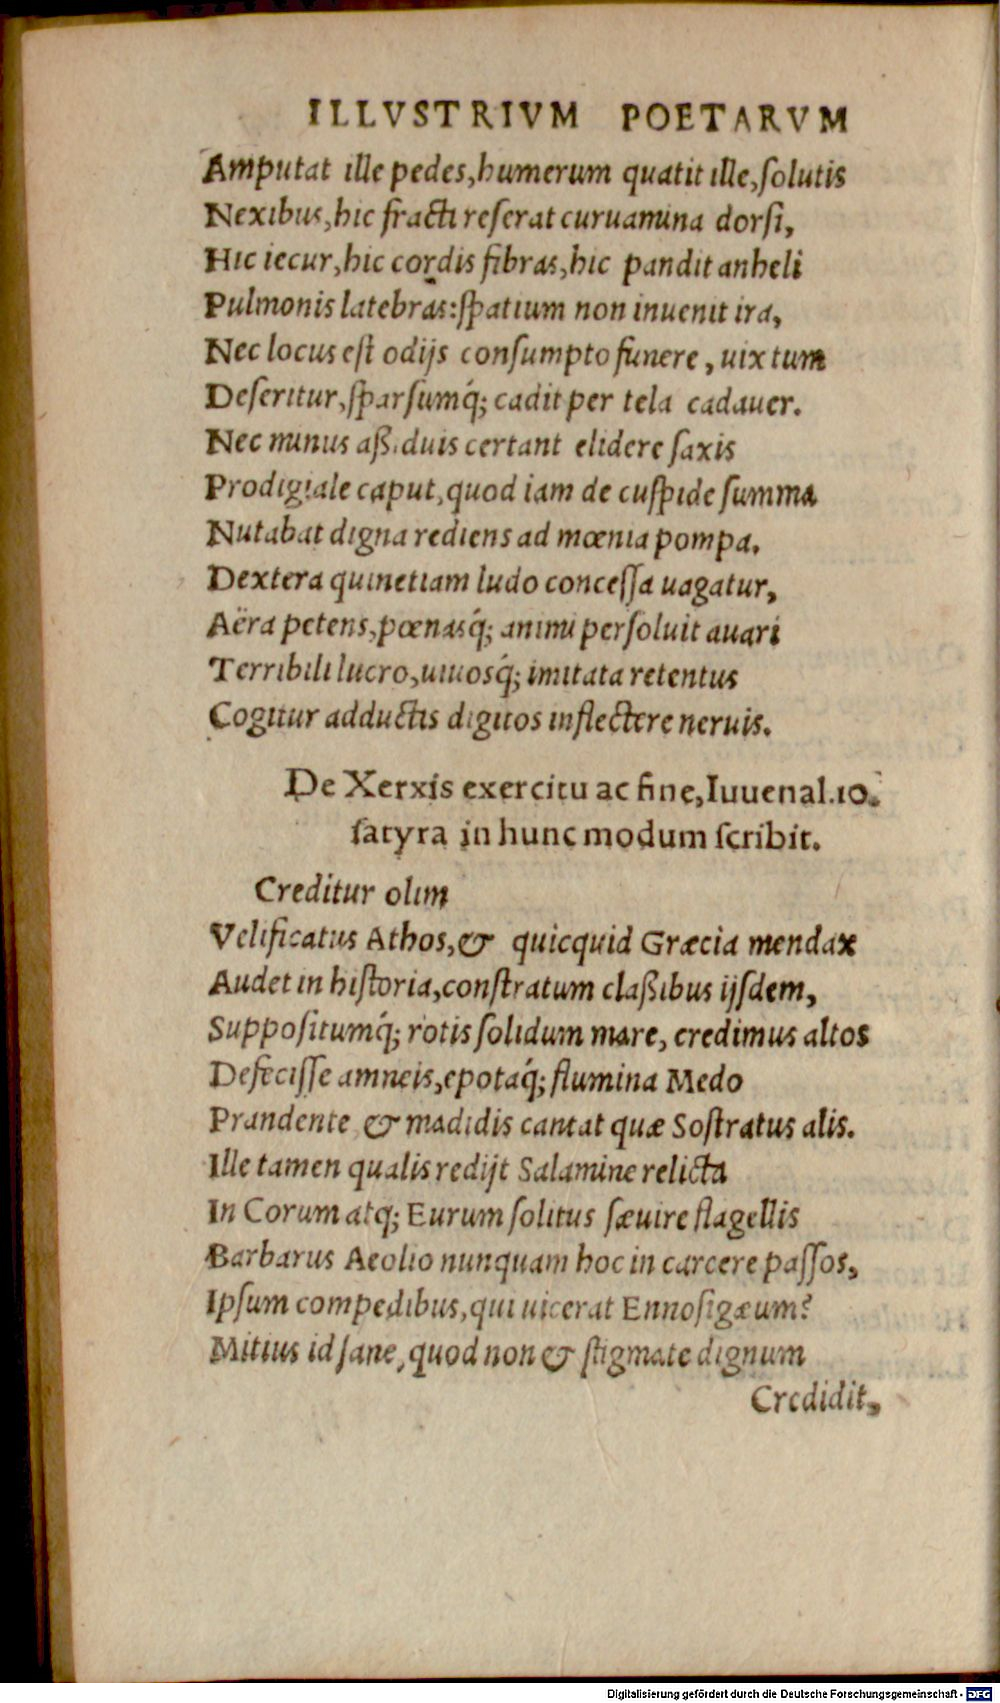 ILLVSTRIVM POETARVM
Amputat ille pedes, humerum quatit ille, solutis
Nexibus, hic fracti reserat curuamina dorsi,
Hic iecur, hic cordis fibras, hic pandit anheli
Pulmonis latebras: spatium non inuenit ira,
Nec locus est odijs consumpto funere, uix tum
Deseritur, sparsumq́; cadit per tela cadauer.
Nec minus aßiduis certant elidere saxis
Prodigiale caput, quod iam de cuspide summa
Nutabat digna rediens ad mœnia pompa.
Dextera quinetiam ludo concessa uagatur,
Aëra petens, pœnasq́; animi persoluit auari
Terribili lucro, uiuosq́; imitata retentus
Cogitur adductis digitos inflectere neruis.
De Xerxis exercitu ac fine, Iuuenal. 10.
satyra in hunc modum scribit.
Creditur olim
Velificatus Athos, & quicquid Græcia mendax
Audet in historia, constratum claßibus ijsdem,
Suppositumq́; rotis solidum mare, credimus altos
Defecisse amneis, epotaq́; flumina Medo
Prandente & madidis cantat quæ Sostratus alis.
Ille tamen qualis redijt Salamine relicta
In Corum atq; Eurum solitus sæuire flagellis
Barbarus Aeolio nunquam hoc in carcere passos,
Ipsum compedibus, qui uicerat Ennosigæum?
Mitius id sane, quod non & stigmate dignum
Credidit,
Digitalisierung gefördert durch die Deutsche Forschungsgemeinschaft - DFG